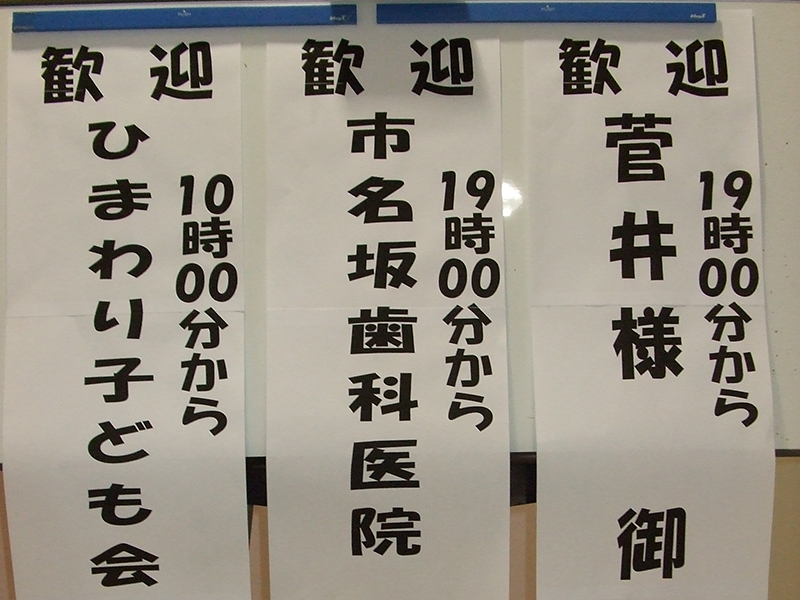 歓迎
菅井様 御
19時00分から
歓迎
市名坂歯科医院
19時00分から
歓迎
ひまわり子ども会
10時00分から